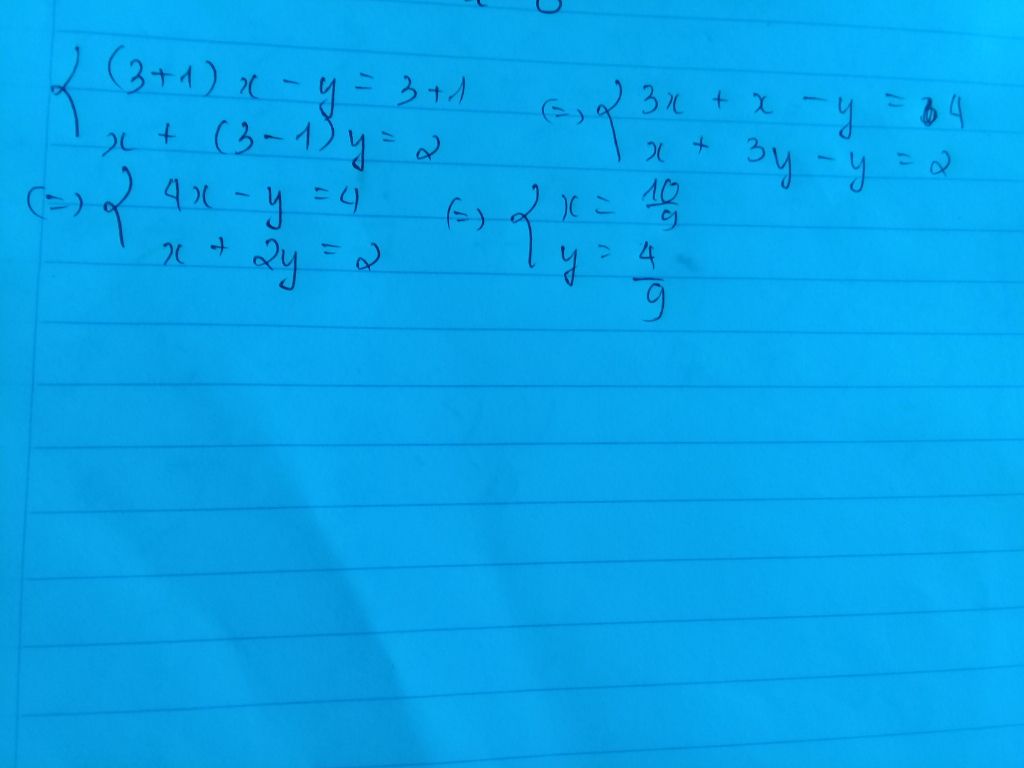 { (3+1) x - y = 3+1
x + (3-1) y = 2
(=) { 3x + x - y = 4
x + 3y - y = 2
(=) { 4x - y = 4
x + 2y = 2
(=) { x = 10/9
y = 4/9